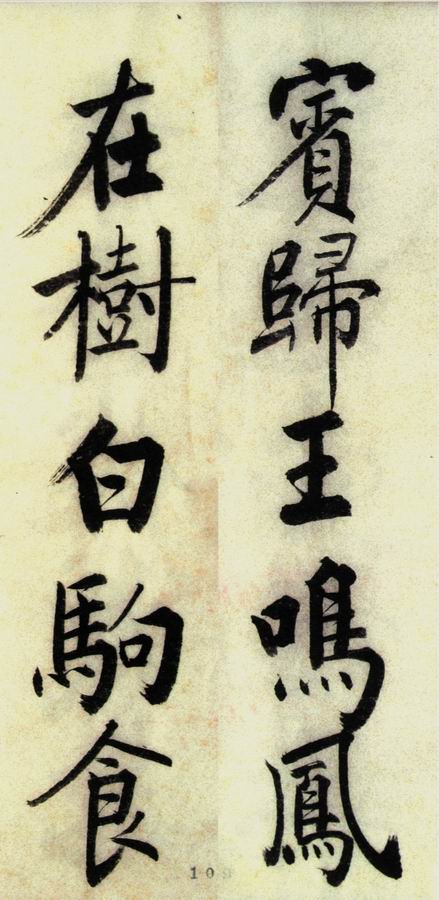 賓歸王鳴鳳
在樹白駒食